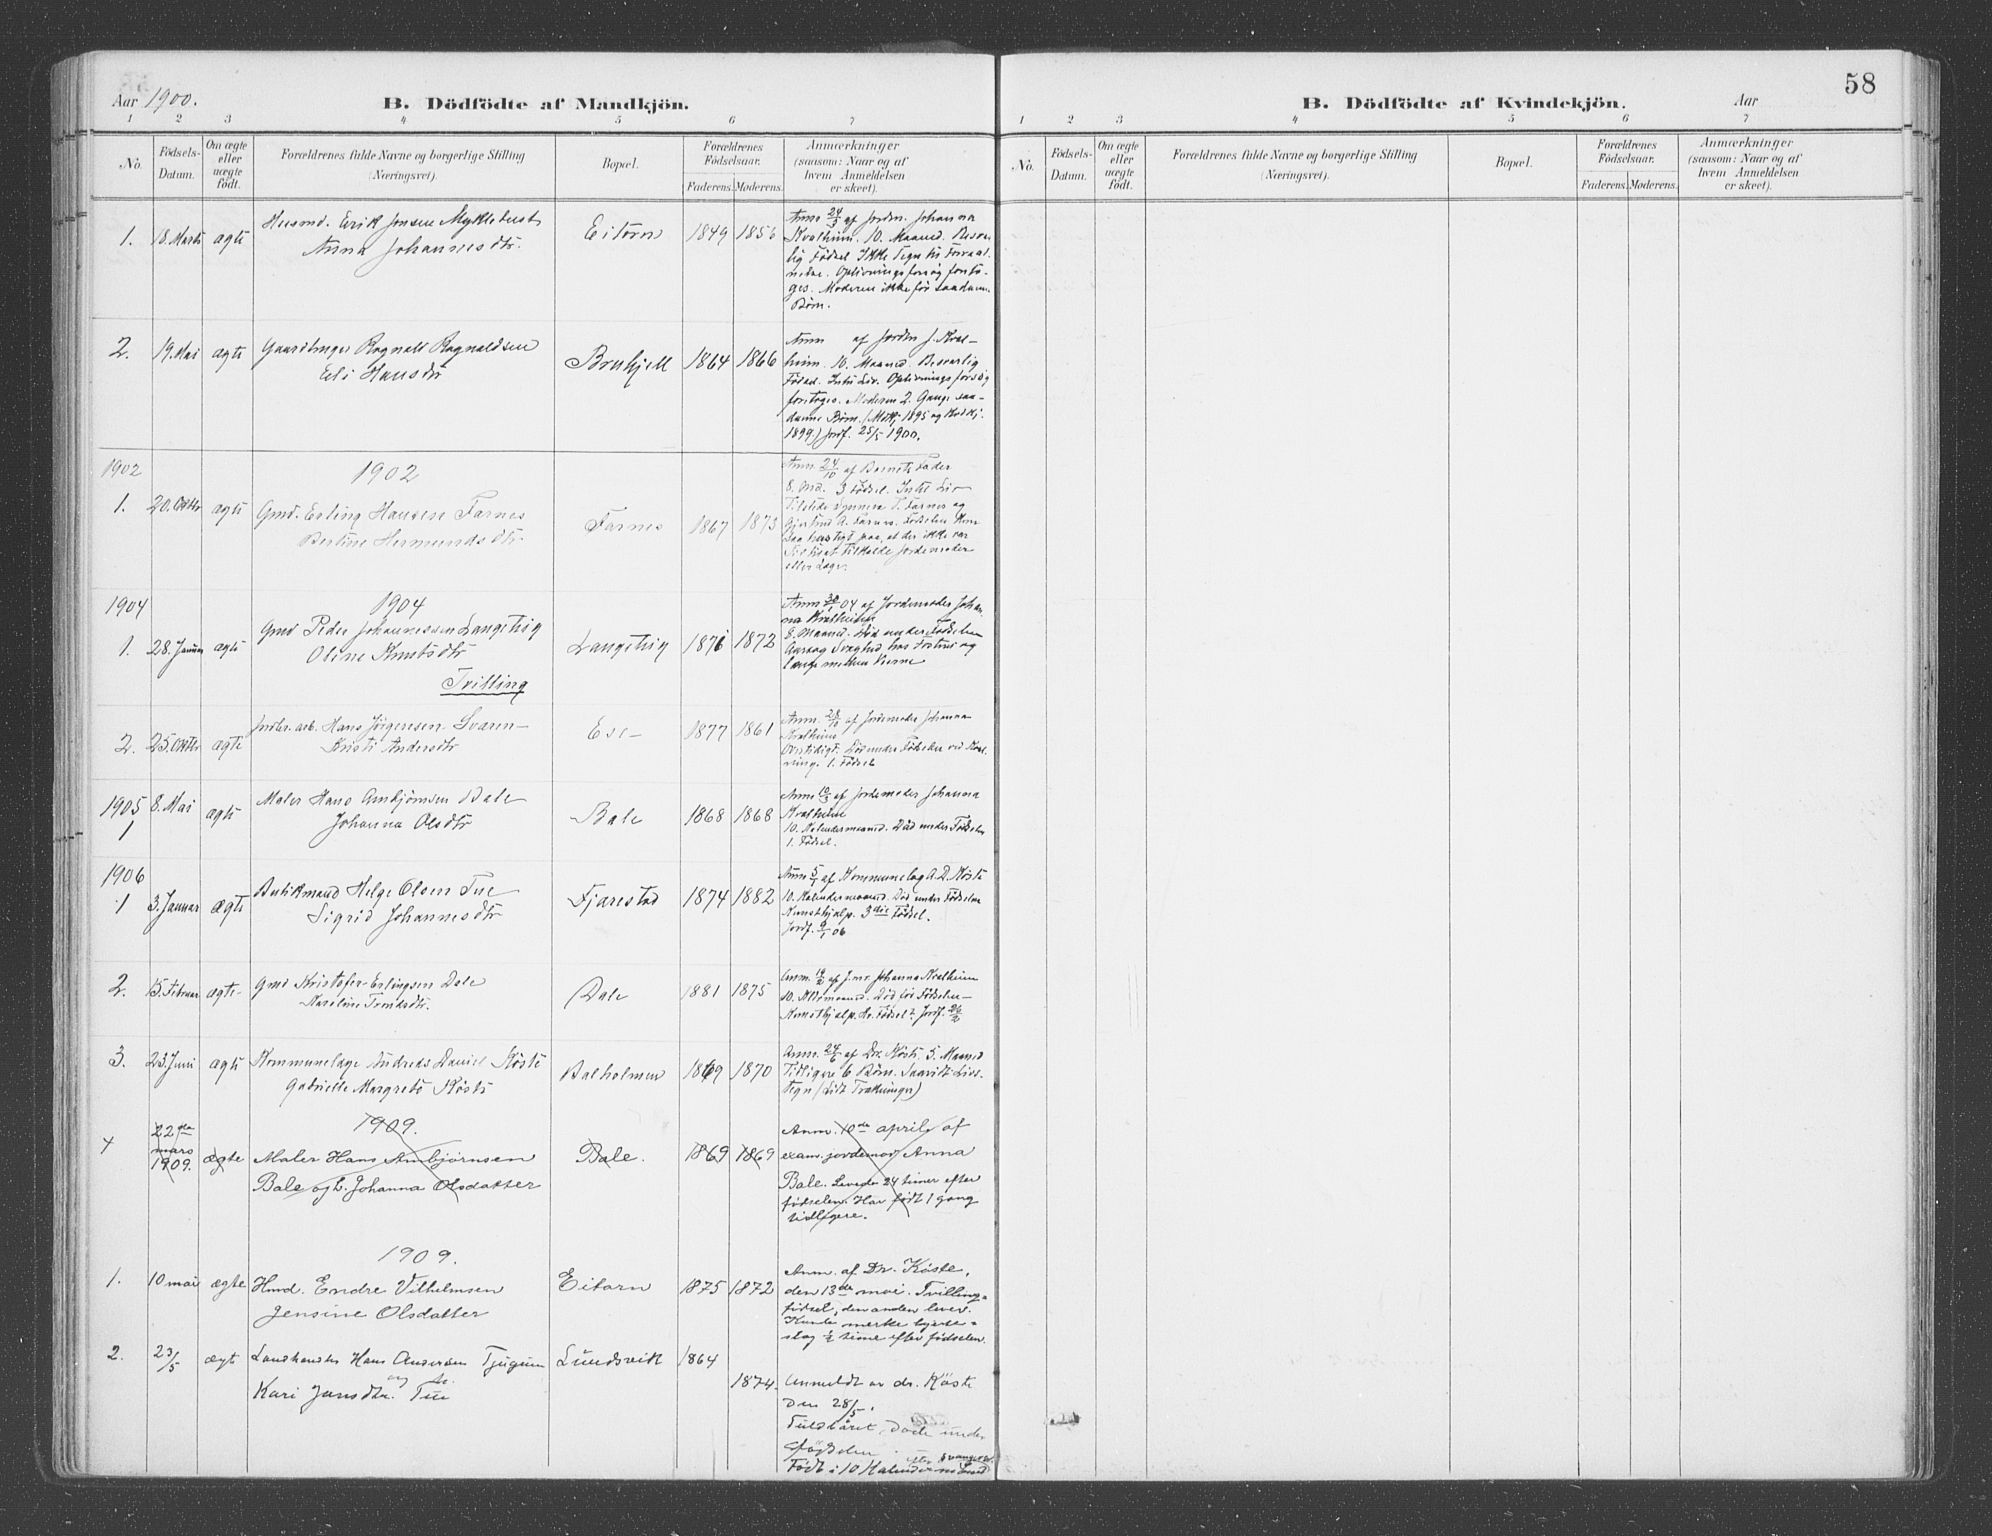 58
Aar 1900.
B. Dödfödte af Mandkjön.
B. Dödfödte af Kvindekjön.
Aar
1 2 3 4 5 6 7
1 2 3 4 5 6 7
No.
Fødsels-
Datum.
Om ægte
eller
uægte
født.
Forældrenes fulde Navne og borgerlige Stilling
(Næringsvei).
Bopæl.
Forældrenes
Fødselsaar.
Faderens. Moderens.
Anmærkninger
(saasom: Naar og af
hvem Anmeldelsen
er skeet).
No.
Fødsels-
Datum.
Om ægte
eller
uægte
født.
Forældrenes fulde Navne og borgerlige Stilling
(Næringsvei).
Bopæl.
Forældrenes
Fødselsaar.
Faderens. Moderens.
Anmærkninger
(saasom: Naar og af
hvem Anmeldelsen
er skeet).
1. 18. Marts ægte
Husmd. Erik Jensen Myklebust
Anna Johannesdtr.
Eitorn 1849 1856
Anm 24/3 af Jordm. Johanna
Kvalheim. 10. Maaned. Besvær-
lig Fødsel Ikke Tegn til Forraad-
nelse. Oplivningsforsøg foreto-
ges. Moderen ikke før saadanne
Børn.
2. 19. Mai ægte
Gaardbruger Ragnald Ragnaldsen
Eli Hansdtr
Brukjell 1864 1866
Anm af Jordm J. Kval-
heim. 10. Maaned. Besværlig
Fødsel. Intet Liv. Oplivningsforsøg
foretoges. Moderen 2. Gange saa-
danne Børn. (Mdkj. 1895 og Kvdkj.
1899.) Jordf. 25/5 1900.
1902
1902
1. 20. Oktbr ægte
Gmd. Erling Hansen Farnes
Bertine Hermundsdtr
Farnes 1867 1873
Anm 24/10 af Barnets Fader
8. Md. 3 Fødsel. Intet Liv
Tilstede Synneva T. Farnes og
Gjertrud A. Farnes. Fødselen kom
saa hastigt paa, at der ikke var
Tid til at tilkalde Jordemoder
eller Læge.
1904
1904
1. 28. Januar ægte
Gmd Peder Johannessen Langeteig
Oline Knutsdtr
Tvilling
Langeteig 1871 1872
Anm 30/1 04 af Jordemoder Johan-
na Kvalheim
8. Maaned. Død under Fødselen
Aarsag Svaghed hos Fosteret og
længe mellem Veerne
2. 25. Oktbr ægte
Hans Jørgensen Svaren
Kristi Andersdtr
Ese 1877 1861
Anm. 28/10 af Jordemoder Johanna
Kvalheim
Død under Fødselen ved Kvæl-
ning. 1. Fødsel
1905
1
8. Mai ægte
Maler Hans Ambjörnsen Bale
Johanna Olsdtr
Bale 1868 1868
Anm 10/5 af Jordemoder Johanna
Kvalheim
10. Kalendermaaned. Død under Fødselen
1. Fødsel.
1906
1 3. Januar ægte
Butikmand Helge Olsen Tue
Sigrid Johannesdtr
Fjærestad 1874 1882
Anm 5/1 af Kommunelæg A. D. Köste
10. Kalendermaaned. Død under Fødselen
Kunsthjælp. 3die Fødsel.
Jordf. 9/1 06
2. 15. Februar ægte
Gmd Kristofer Erlingsen Dale
Karoline Trondsdtr.
Dale 1881 1875
Anm. 19/2 af J.m. Johanna Kvalheim
10. Kldrmaaned. Død før Fødselen
Kunsthjælp. Jordf. 26/2
3. 23. Juni ægte
Kommunelæge Andreas Daniel Köste
Gabrielle Margrete Köste
Balholmen 1869 1870
Anm. 24/6 af Dr. Köste. 5. Maaned
Tidligere 6 Børn. Svage Livs-
tegn (Lidt Trækninger)
1909.
4 22de
mars
1909. ægte
Maler Hans Ambjørnsen
Bale og h. Johanna Olsdatter
Bale. 1869 1869
Anm. 10de april af
exam. jordemor Anna
Bale. Levede 24 timer efter
fødselen. Har født 1 gang
tidligere.
1909.
1. 10 mai ægte
Hmd. Endre Vilhelmsen
Jensine Olsdatter
Eitorn 1875 1872
Anm. af Dr. Köste,
den 13de mai. Tvilling-
fødsel, den anden lever.
Kunde merke hjerte-
slag ½ time efter fødselen.
2. 23/5 ægt
Landhandler Hans Andersen Tjugum
og h.
Kari Jansdtr. Tue
Lundsvik 1864
1874.
Anmeldt av dr. Köste
den 28/5.
Fuldbåret, døde under
fødselen.
Født i 10 Kalenderm